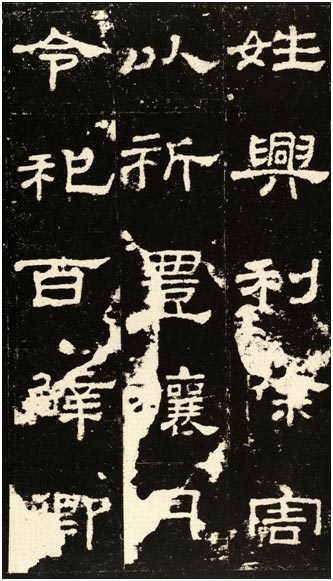 姓興利除害
以祈豊穰月
令祀百辟卿